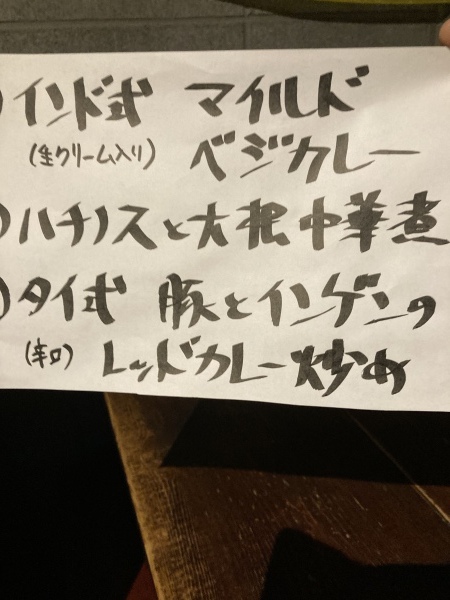 ) インド式 マイルド
(生クリーム入り) ベジカレー
) ハチノスと大根中華煮
) タイ式 豚とインゲンの
(辛口) レッドカレー炒め